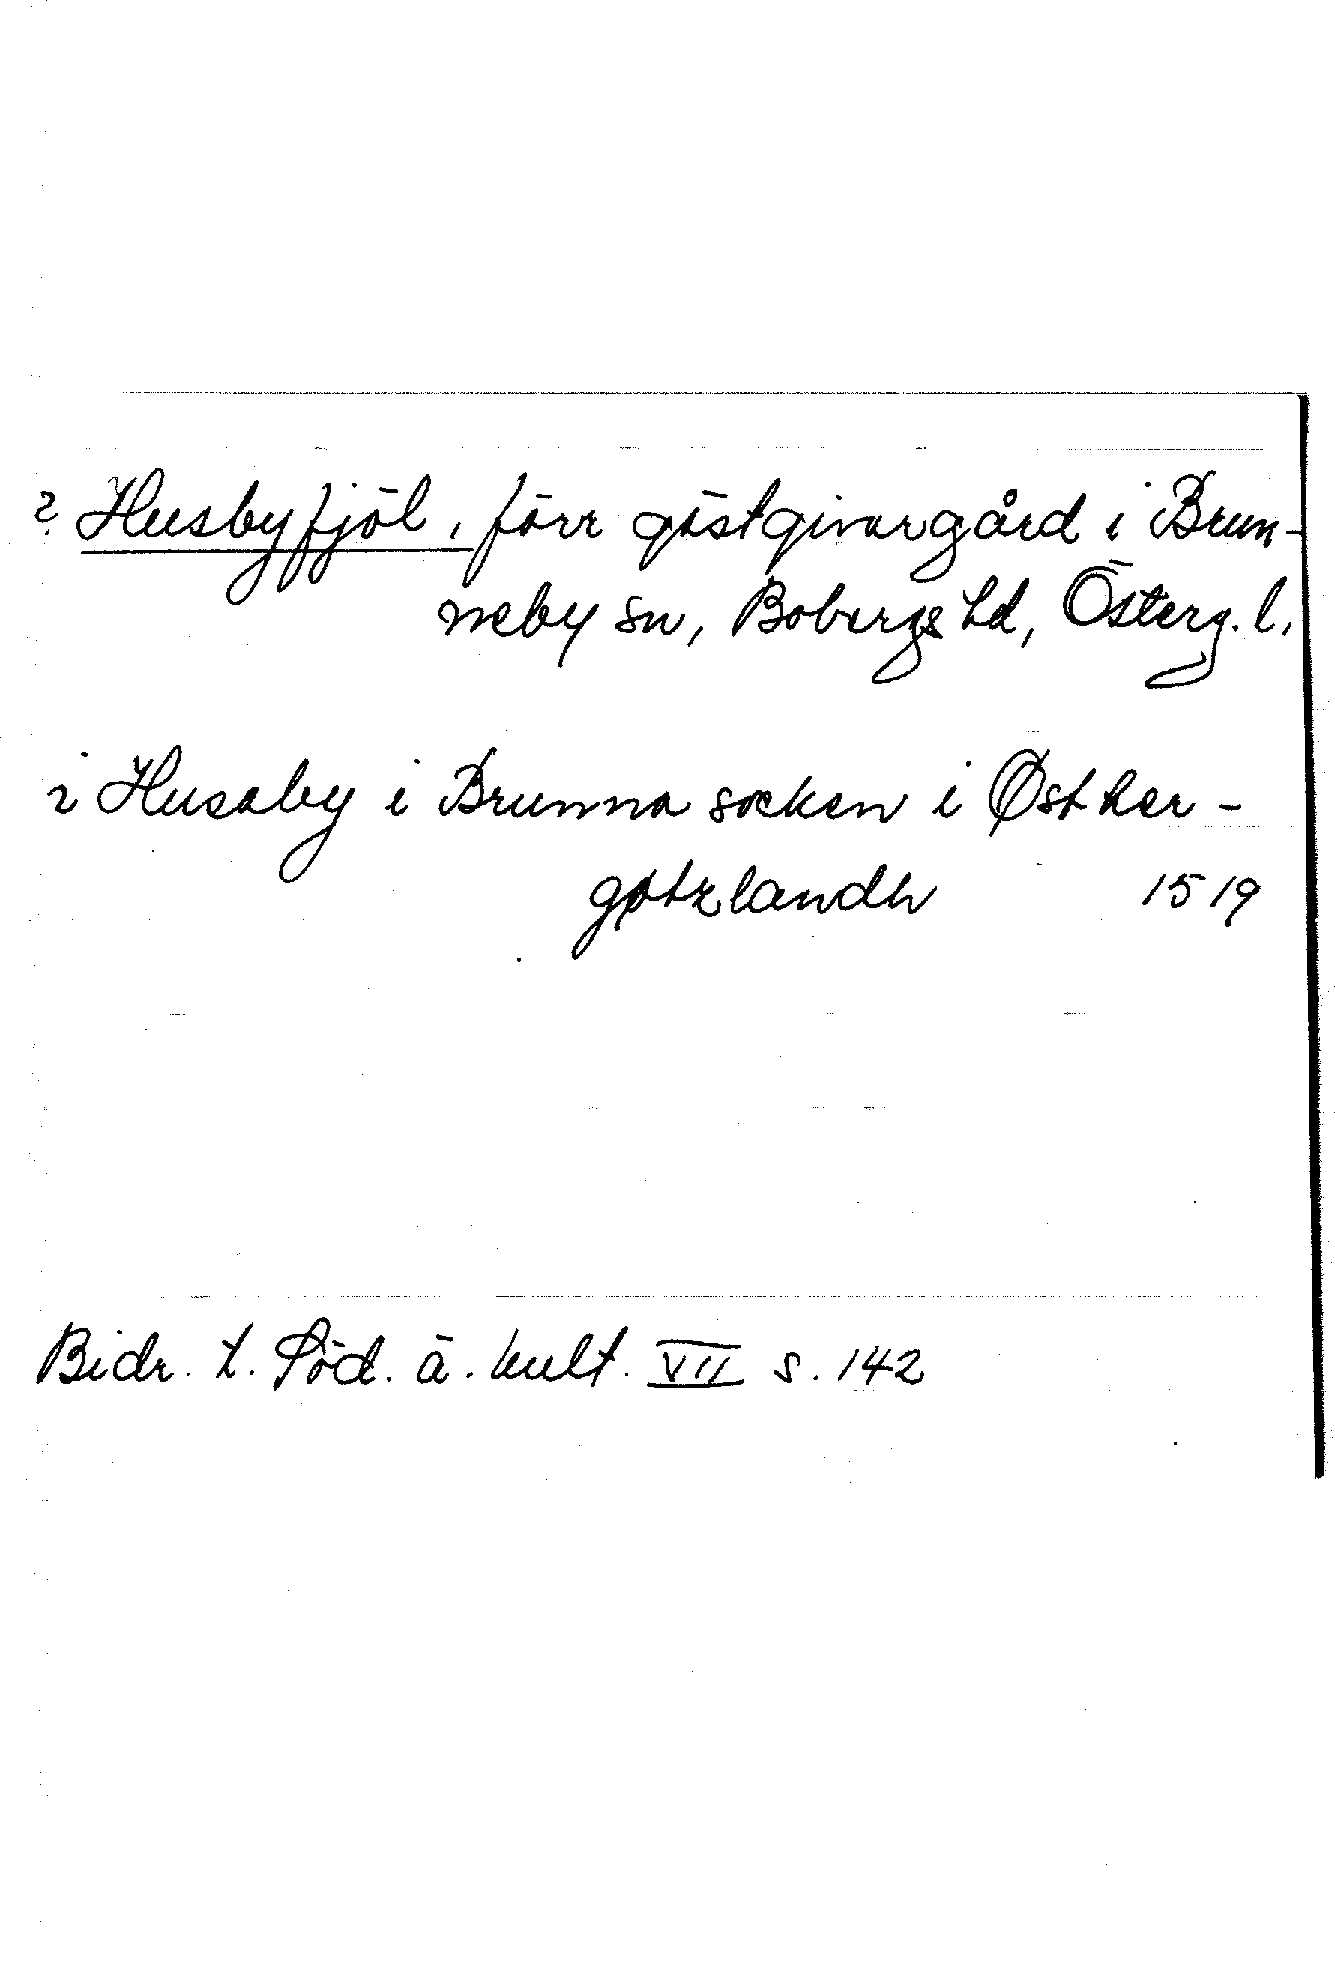 ? Husbyfjöl, förr gästgivargård i Brun-
neby sn, Bobergs hd, Österg. l.
i Husaby i Brunna socken i Østher-
gøtzlandh 1519
Bidr. t. Söd. ä. kult. VII s. 142